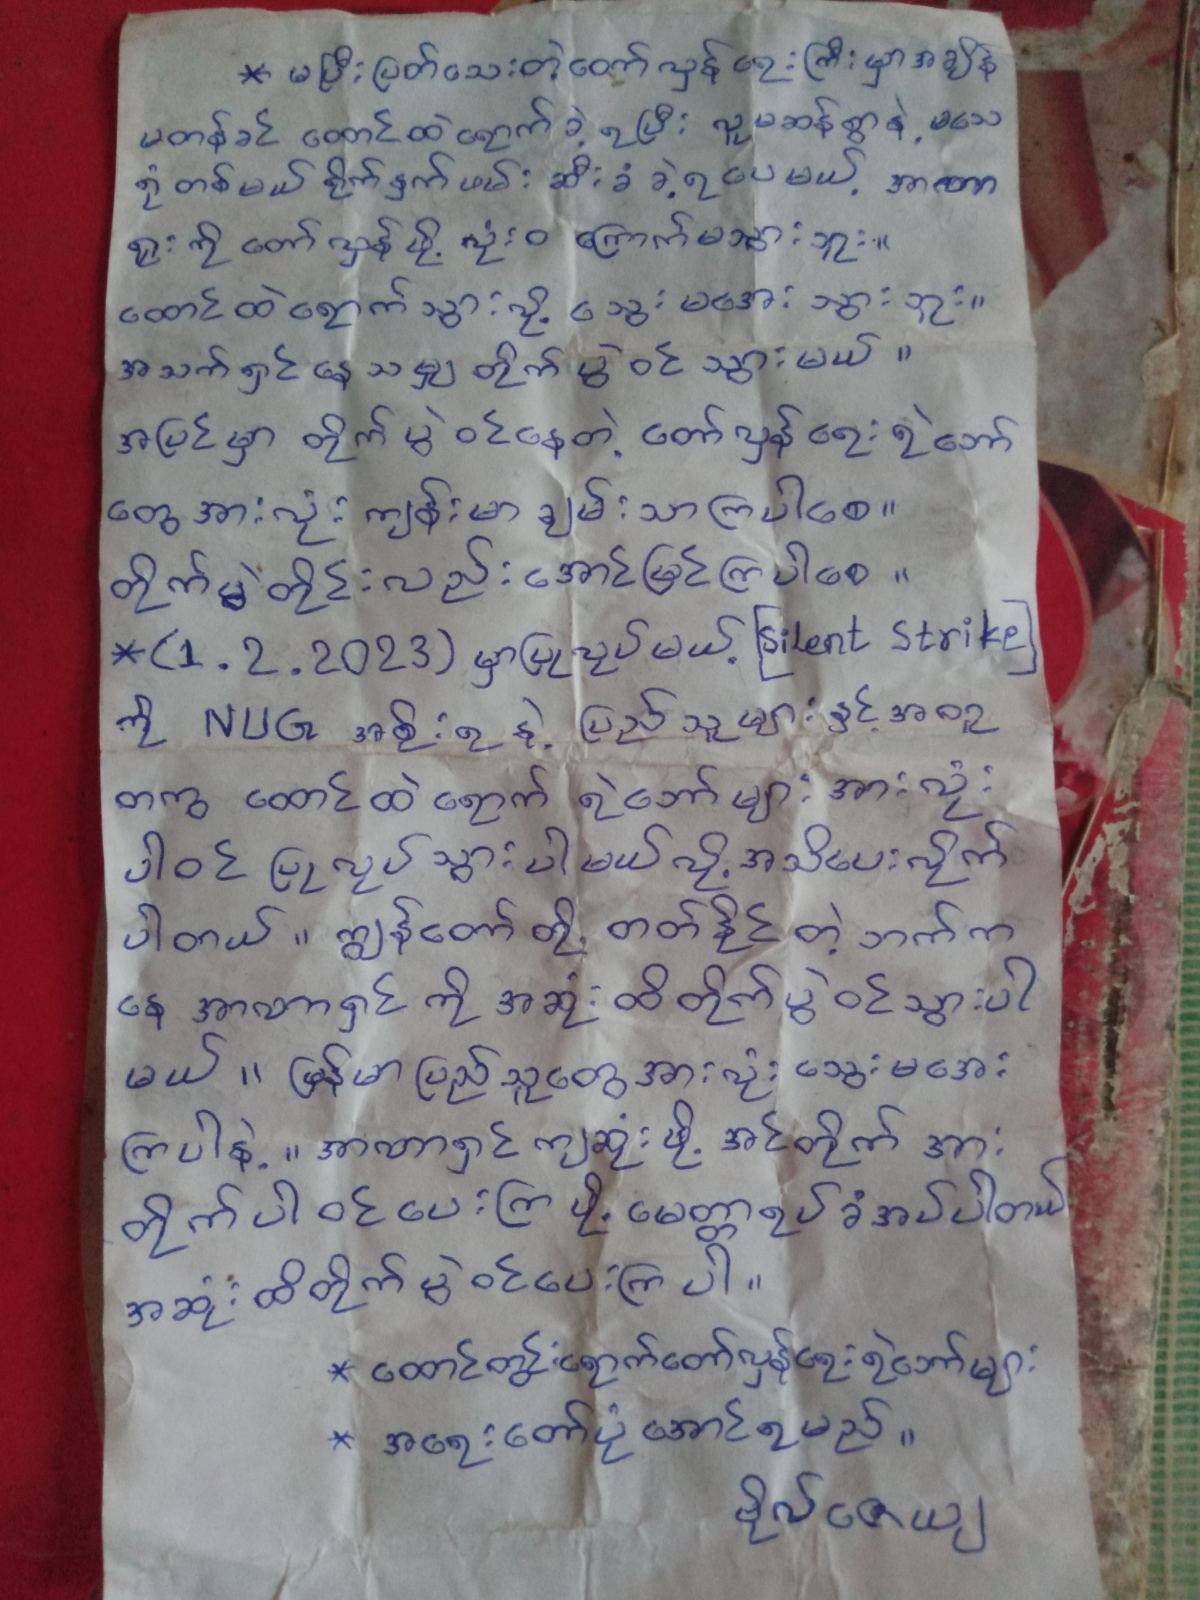 * မပြီးပြတ်သေးတဲ့တော်လှန်ရေးကြီးမှာအချိန်
မတန်ခင် ထောင်ထဲရောက်ခဲ့ရပြီး လူမဆန်စွာနဲ့ မသေ
ရုံတစ်မယ် ရိုက်နှက်ဖမ်းဆီးခံခဲ့ရပေမယ့် အာဏာ
ရူးကို တော်လှန်ဖို့ လုံးဝ ကြောက်မသွားဘူး။
ထောင်ထဲရောက်သွားလို့ သွေးမအေးသွားဘူး။
အသက်ရှင်နေသမျှ တိုက်ပွဲဝင်သွားမယ်။
အပြင်မှာ တိုက်ပွဲဝင်နေတဲ့ တော်လှန်ရေးရဲဘော်
တွေအားလုံး ကျန်းမာချမ်းသာကြပါစေ။
တိုက်ပွဲတိုင်းလည်းအောင်မြင်ကြပါစေ။
*(1.2.2023) မှာပြုလုပ်မယ့် [Silent Strike]
ကို NUG အစိုးရနဲ့ ပြည်သူများနှင့်အတူ
တကွ ထောင်ထဲရောက် ရဲဘော်များအားလုံး
ပါဝင်ပြုလုပ်သွားပါမယ်လို့အသိပေးလိုက်
ပါတယ်။ ကျွန်တော်တို့ တတ်နိုင်တဲ့ဘက်က
နေ အာဏာရှင်ကို အဆုံးထိတိုက်ပွဲဝင်သွားပါ
မယ်။ မြန်မာပြည်သူတွေအားလုံး သွေးမအေး
ကြပါနဲ့။ အာဏာရှင်ကျဆုံးဖို့ အင်တိုက်အား
တိုက်ပါဝင်ပေးကြဖို့ မေတ္တာရပ်ခံအပ်ပါတယ်
အဆုံးထိတိုက်ပွဲဝင်ပေးကြပါ။
* ထောင်တွင်းရောက်တော်လှန်ရေးရဲဘော်များ
* အရေးတော်ပုံအောင်ရမည်။
ဗိုလ်ဇေယျ